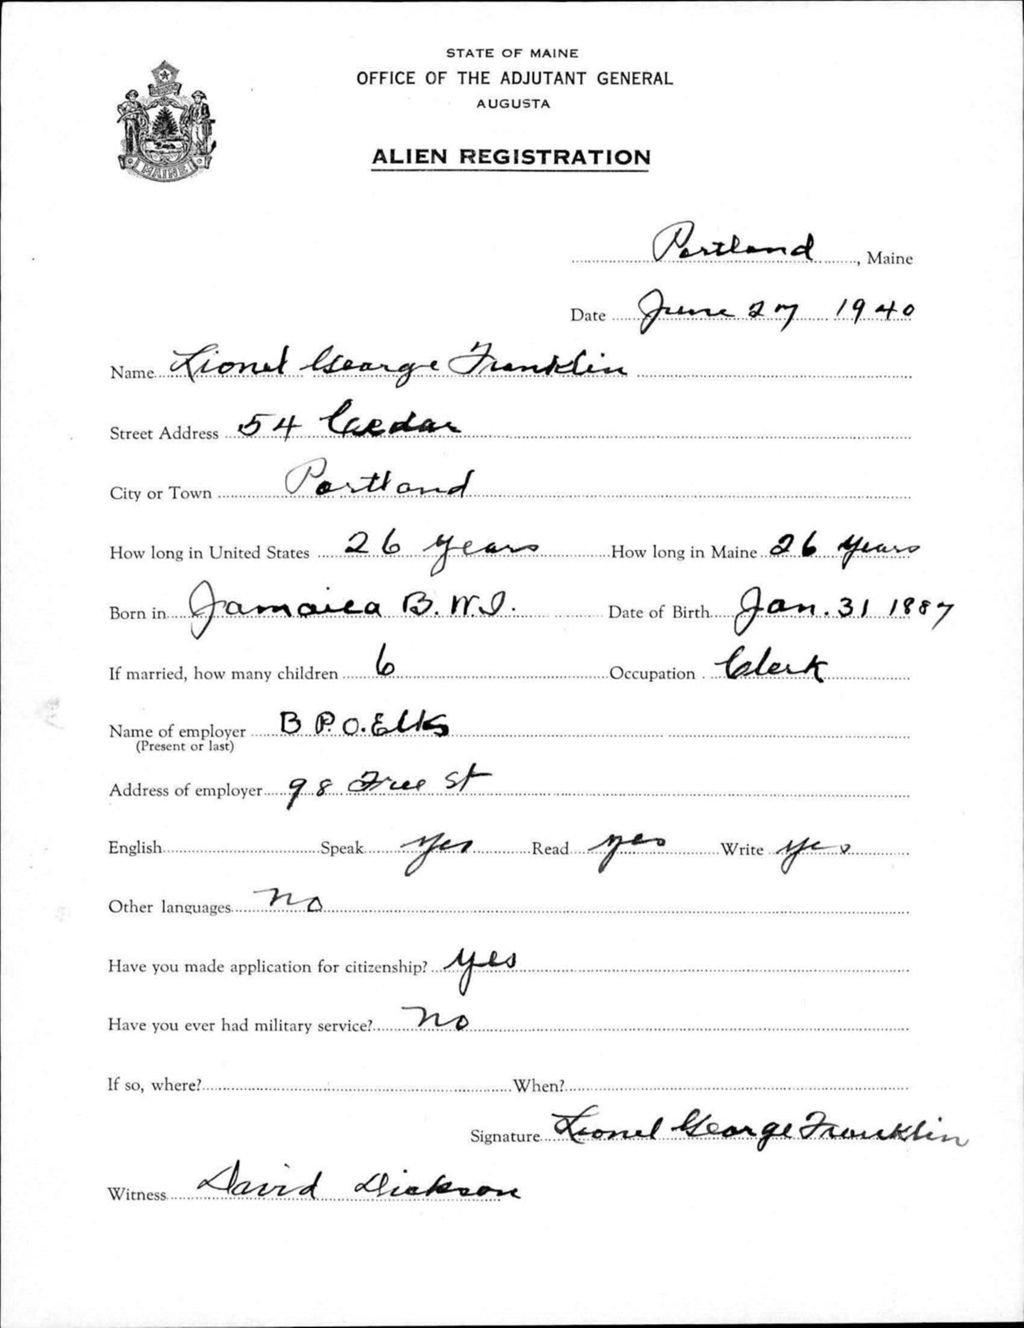 STATE OF MAINE
OFFICE OF THE ADJUTANT GENERAL
AUGUSTA
ALIEN REGISTRATION
MAINE
Portland, Maine
Date June 27 1940
Name Lionel George Franklin
Street Address 54 Cedar
City or Town Portland
How long in United States 26 years How long in Maine 26 years
Born in Jamaica B.W.I. Date of Birth Jan. 31 1887
If married, how many children 6 Occupation Clerk
Name of employer B P.O. Elks
(Present or last)
Address of employer 98 Free St
English Speak yes Read yes Write yes
Other languages no
Have you made application for citizenship? yes
Have you ever had military service? no
If so, where? When?
Signature Lionel George Franklin
Witness David Dickson